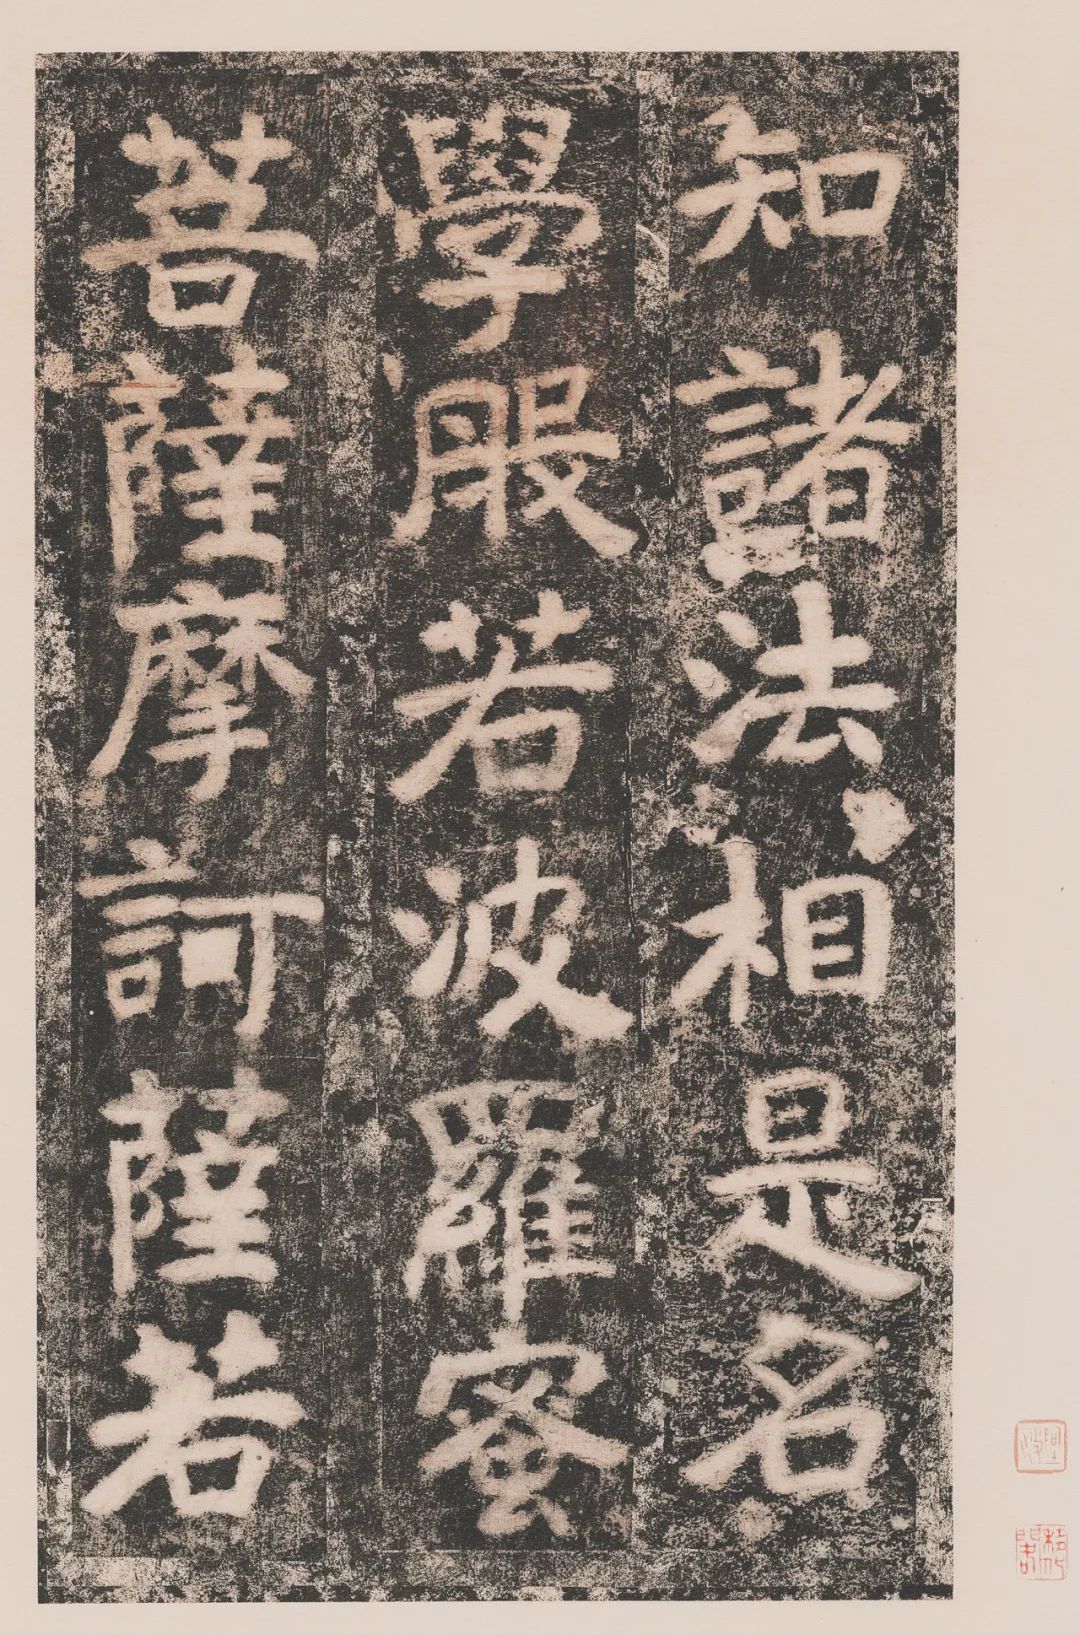 知諸法相是名
學服若波羅蜜
菩薩摩訶薩若